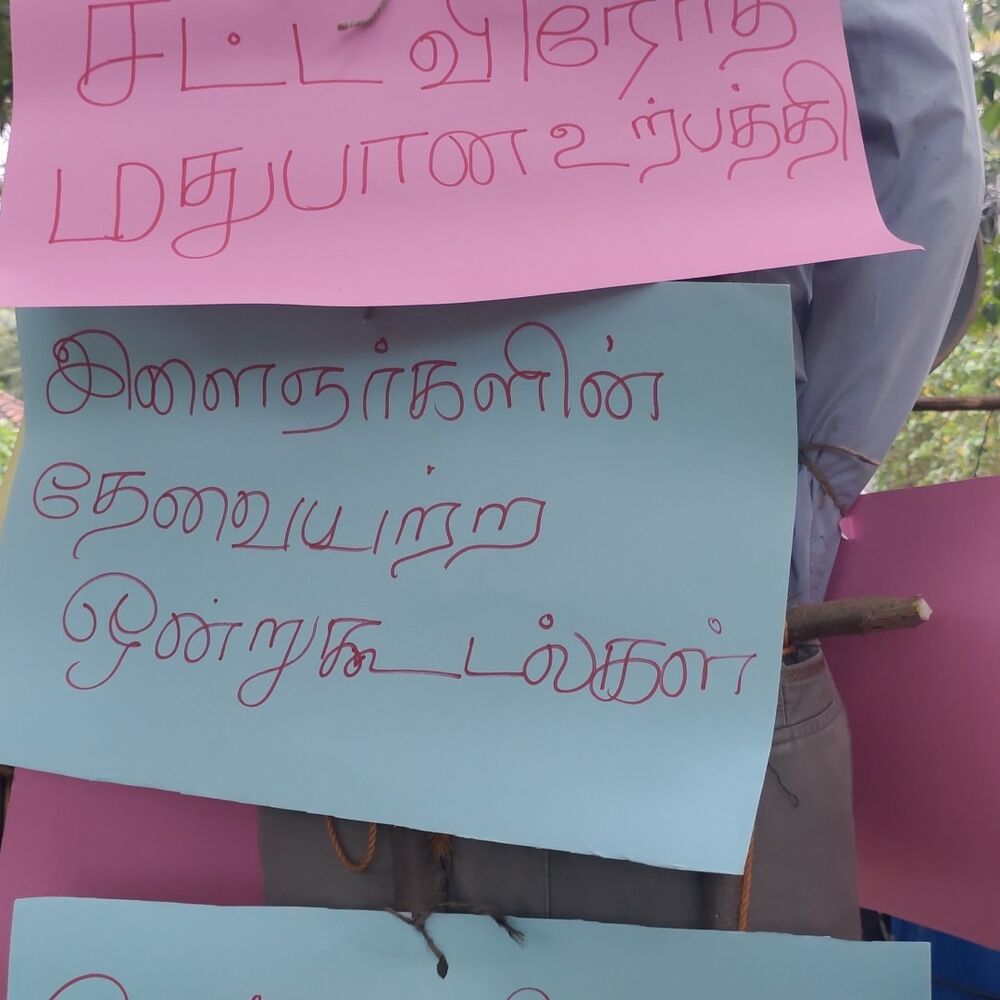 சட்டவிரோத
மதுபான உற்பத்தி
இளைஞர்களின்
தேவையற்ற
ஒன்றுகூடல்கள்